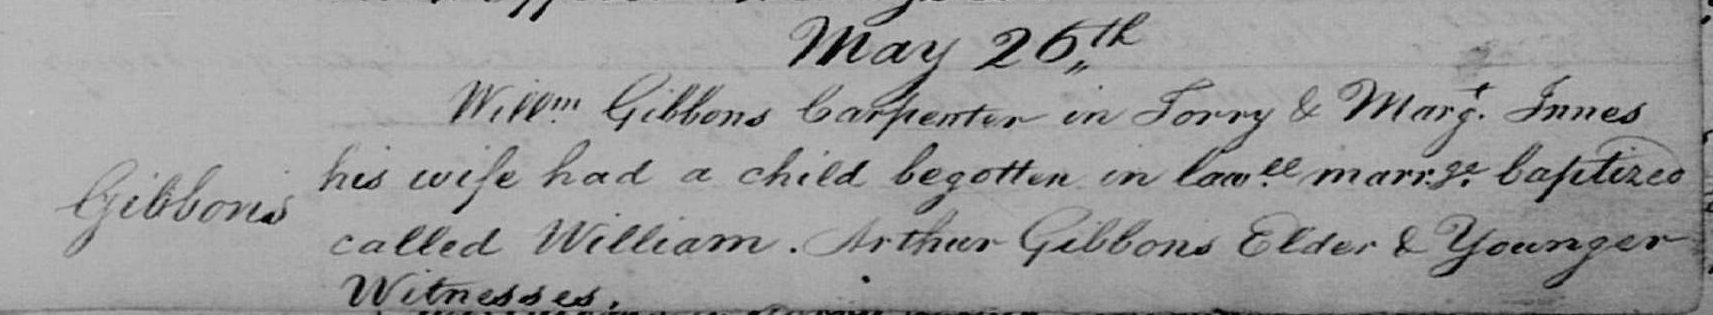 May 26th
Willm Gibbons Carpenter in Torry & Margt. Innes
Gibbons
his wife had a child begotten in lawll marrge. baptized
called William. Arthur Gibbons Elder & Younger
Witnesses.